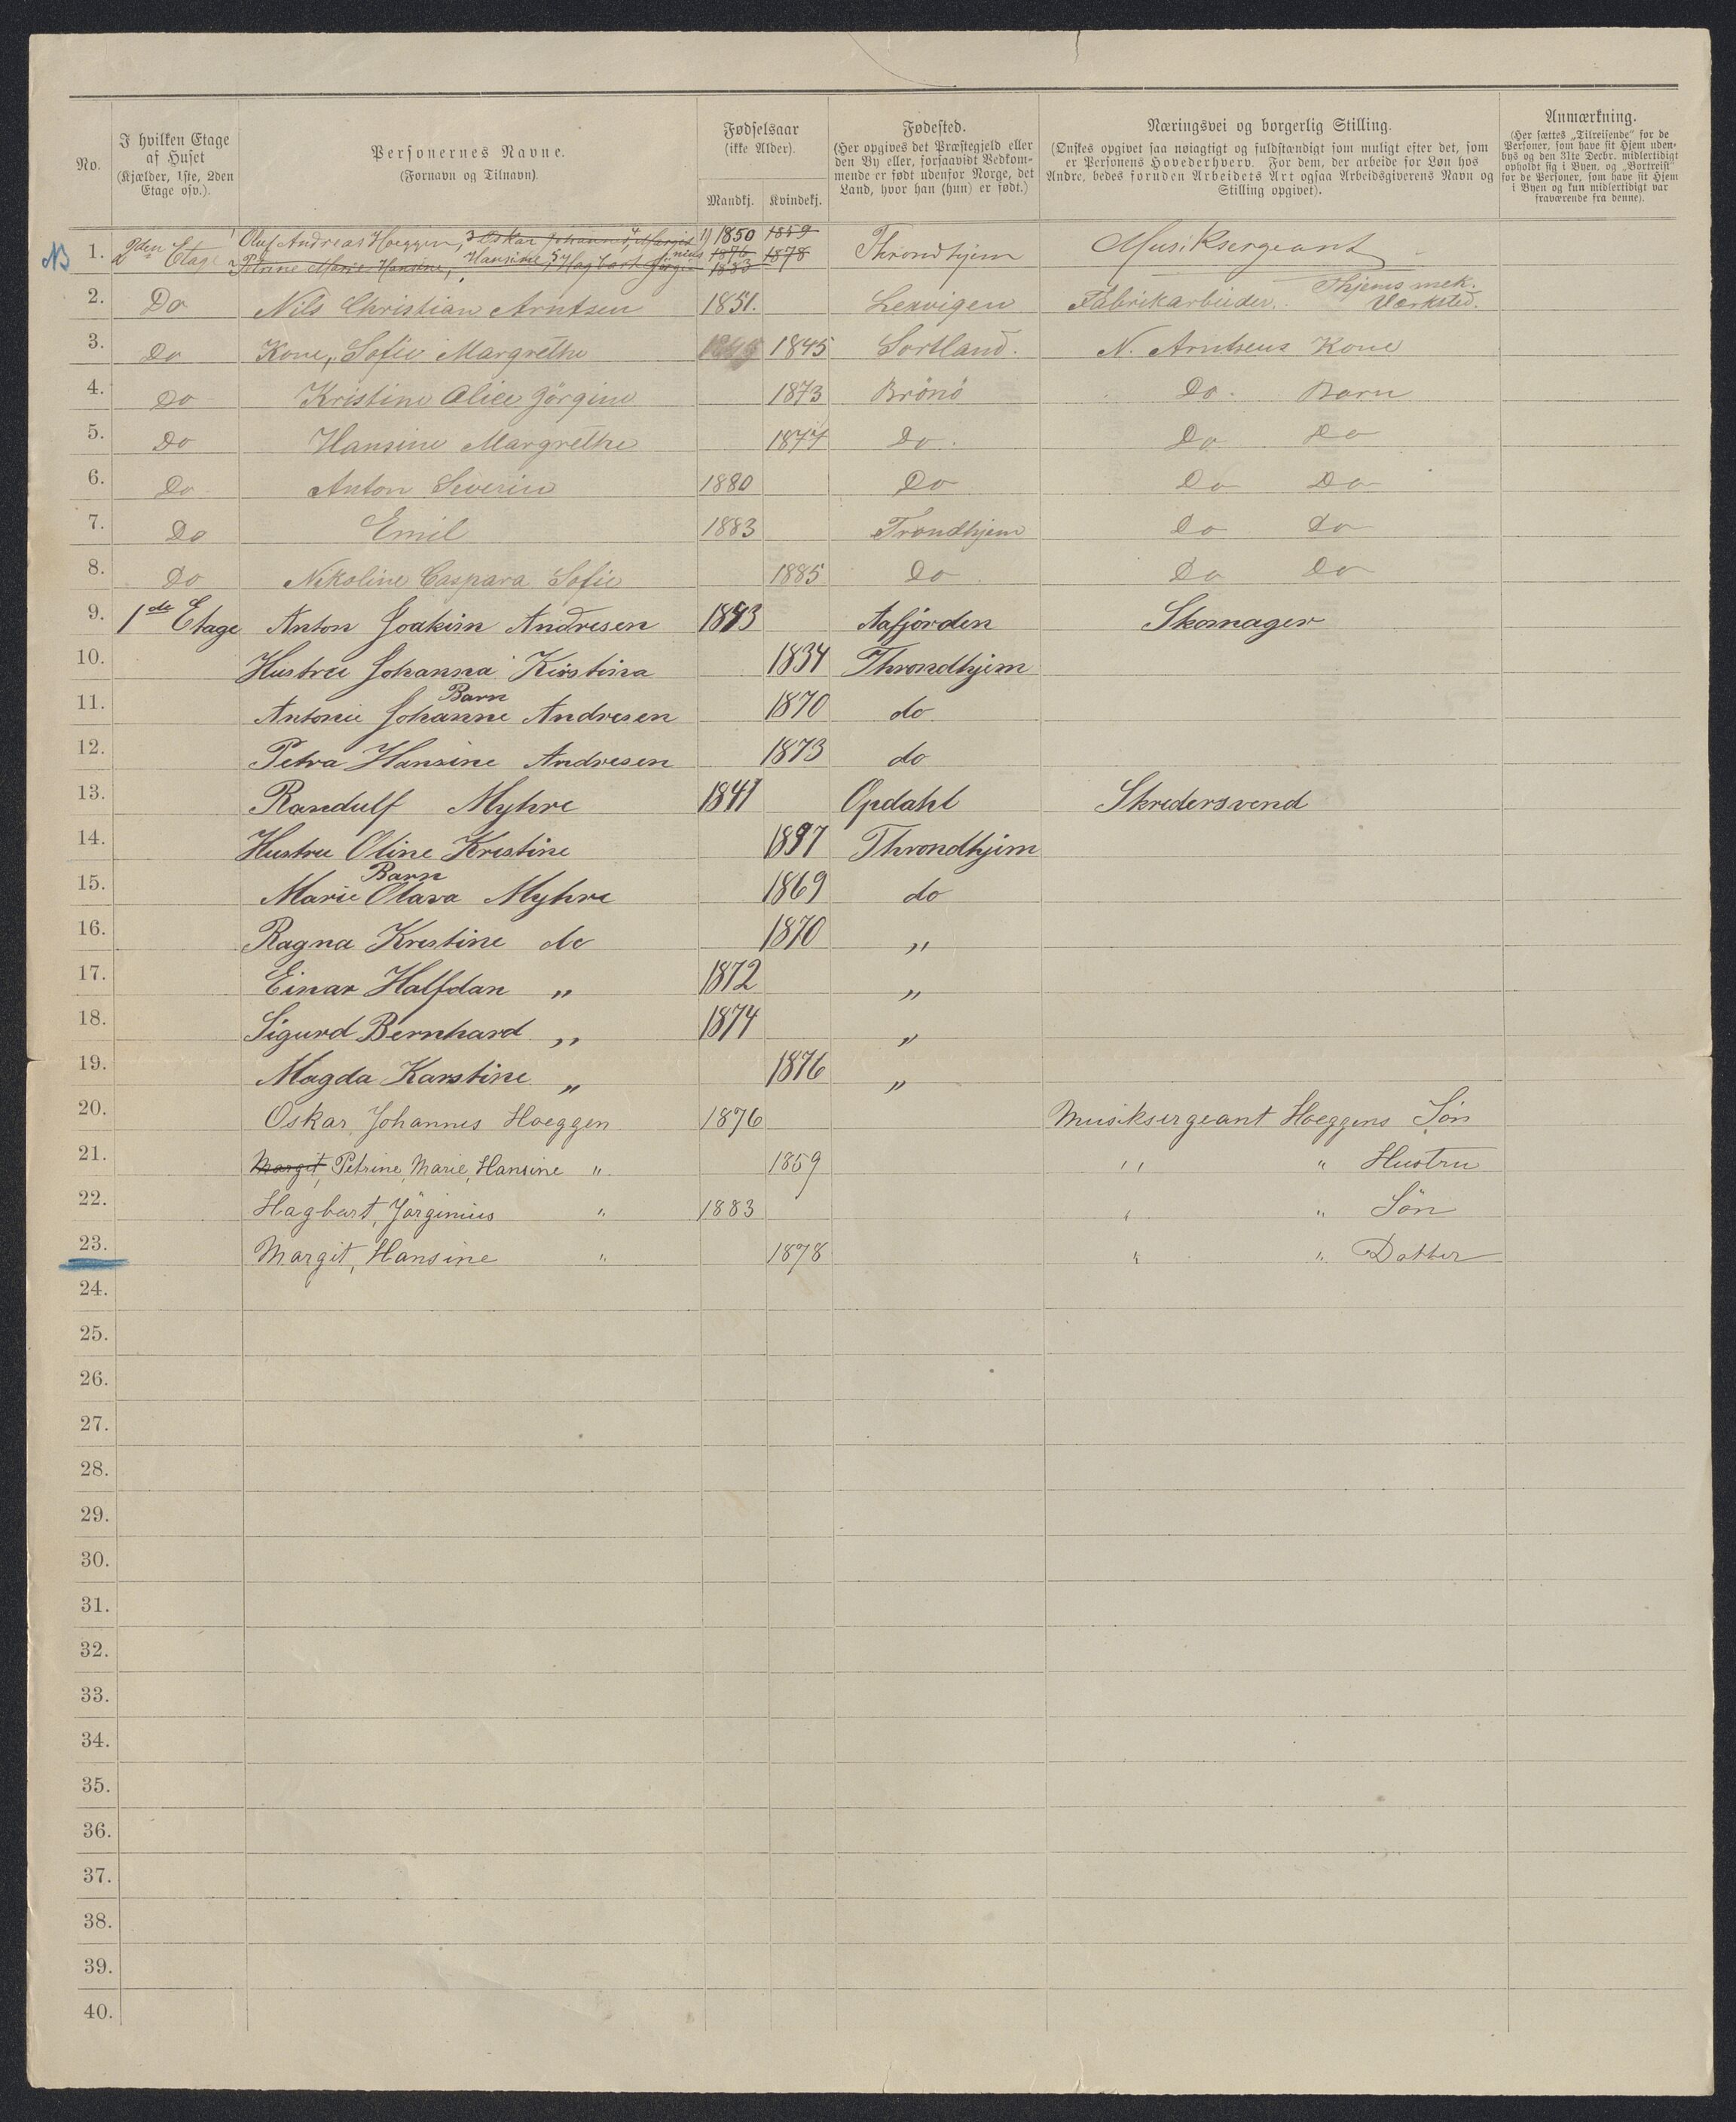 No.
I hvilken Etage
af Huset
(Kjælder, 1ste, 2den
Etage osv.).
Personernes Navne.
(Fornavn og Tilnavn)
Fødselsaar
(ikke Alder).
Mandkj.
Kvindekj.
Fødested.
(Her opgives det Præstegjeld eller
den By eller, forsaavidt Vedkom-
mende er født udenfor Norge, det
Land, hvor han (hun) er født.)
Næringsvei og borgerlig Stilling.
(Ønskes opgivet saa nøiagtigt og fuldstændigt som muligt efter det, som
er Personens Hovederhverv. For dem, der arbeide for Løn hos
Andre, bedes foruden Arbeidets Art ogsaa Arbeidsgiverens Navn og
Stilling opgivet).
Anmærkning.
(Her sættes „Tilreisende" for de
Personer, som have sit Hjem uden-
bys og den 31te Decbr. midlertidigt
opholdt sig i Byen, og „Bortreist"
for de Personer, som have sit Hjem
i Byen og kun midlertidigt var
fraværende fra denne).
NB 1. 2den Etage 1 Oluf Andreas Hoeggen, 3 Oskar Johannes, 4 Margit 1) 1850 1859 Throndhjem Musiksergeant
2 Petrine Marie Hansine, Hansine, 5 Hagbart Jørginius 1876 1878 1883
2. Do Nils Christian Arntsen 1851. Lexvigen Fabrikarbeider. Thjems mek. Værksted.
3. Do Kone, Sofie Margrethe 1845 1845 Sortland. N. Arntsens Kone
4. Do Kristine Alice Jörgine 1873 Brönö Do. Barn
5. Do Hansine Margrethe 1877 Do. Do Do
6. Do Anton Severin 1880 Do Do Do
7. Do Emil 1883 Trondhjem Do Do
8. Do Nikoline Caspara Sofie 1885 Do Do Do
9. 1ste Etage Anton Joakim Andresen 1843 Aafjorden Skomager
10. Hustru Johanna Kirstina 1834 Throndhjem
11. Barn
Antonie Johanne Andresen 1870 do
12. Petra Hansine Andresen 1873 do
13. Randulf Myhre 1841 Opdahl Skredersvend
14. Hustru Oline Kristine 1837 Throndhjem
15. Barn
Marie Olava Myhre 1869 do
16. Ragna Kristine do 1870 „
17. Einar Halfdan „ 1872 „
18. Sigurd Bernhard „ 1874 „
19. Magda Karstine „ 1876 „
20. Oskar Johannes Hoeggen 1876 Musiksergeant Hoeggens Søn
21. Margit, Petrine, Marie, Hansine " 1859 " " Hustru
22. Hagbart, Jörginius " 1883 " " Søn
23. Margit, Hansine " 1878 " " Datter
24.
25.
26.
27.
28.
29.
30.
31.
32.
33.
34.
35.
36.
37.
38.
39.
40.